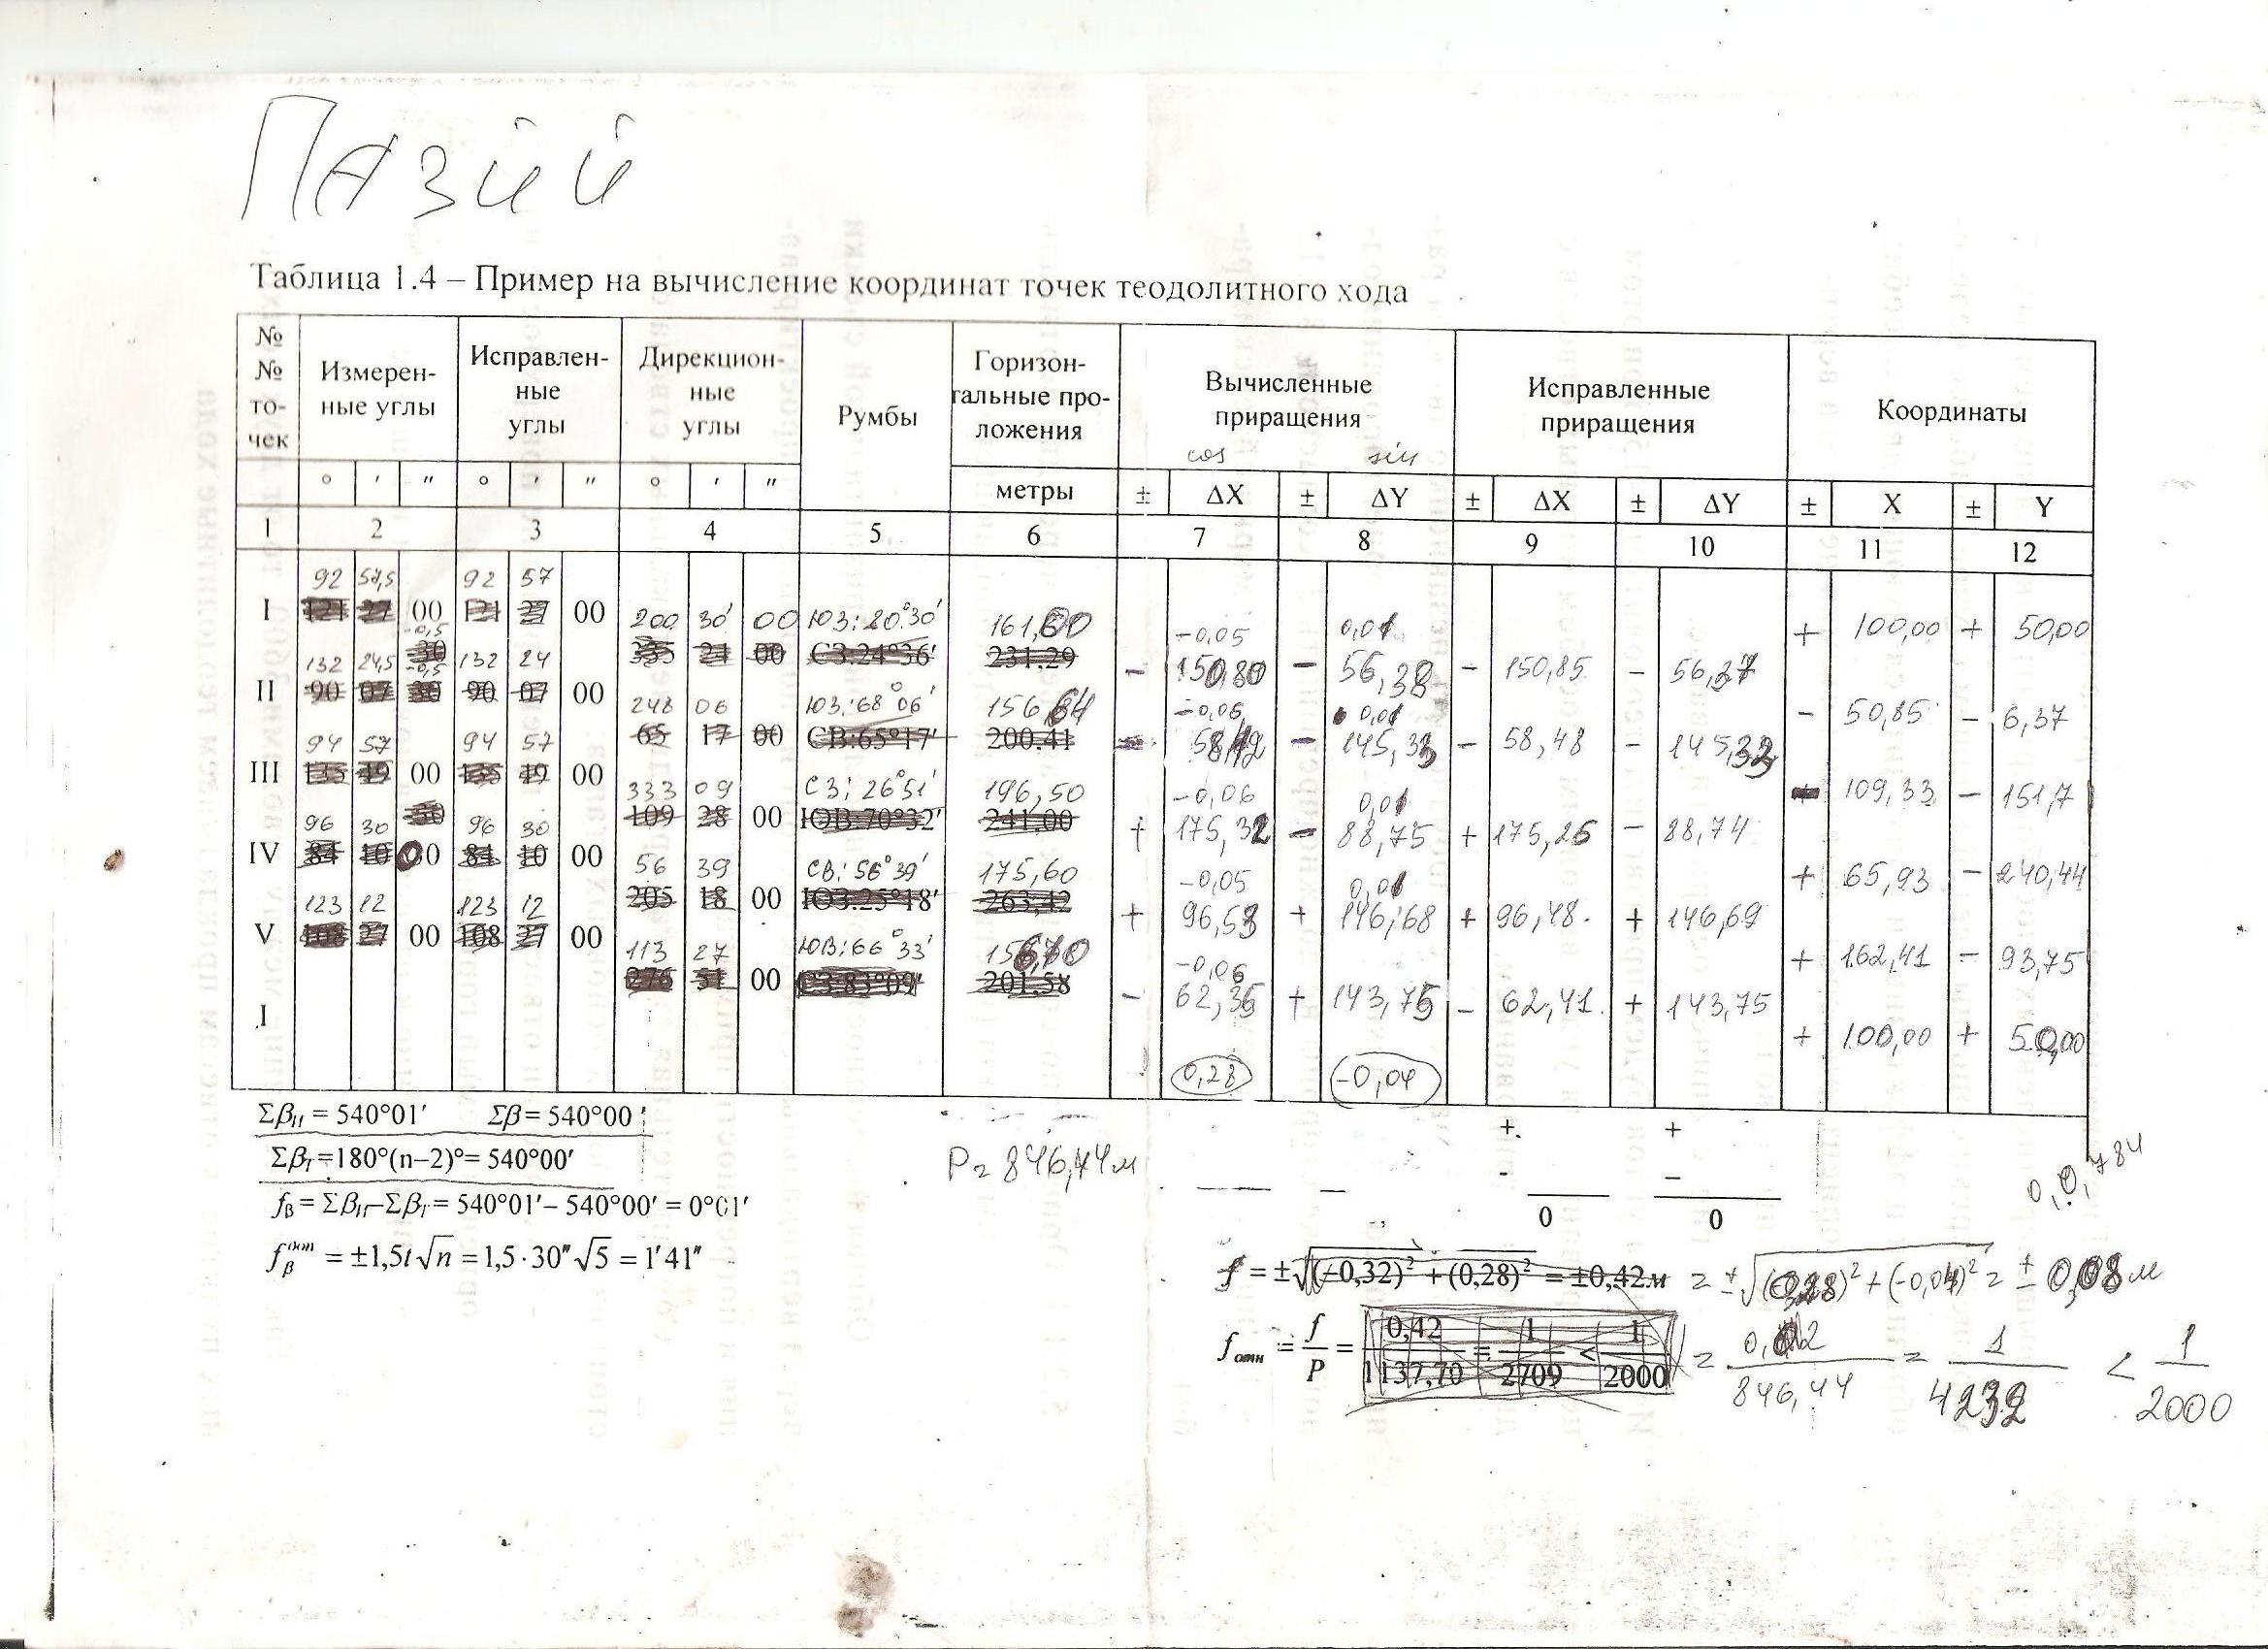 ПАЗИЙ
Таблица 1.4 – Пример на вычисление координат точек теодолитного хода
№ № то- чек | Измерен- ные углы | Исправлен- ные углы | Дирекцион- ные углы | Румбы | Горизон- тальные про- ложения | Вычисленные приращения | Исправленные приращения | Координаты
cos sin
° ′ ″ ° ′ ″ ° ′ ″ метры ± ΔX ± ΔY ± ΔX ± ΔY ± X ± Y
1 2 3 4 5 6 7 8 9 10 11 12
92 57,5 92 57
I 121 27 00 121 27 00
200 30′ 00 ЮЗ: 20°30′ 161,60 -0,05 0,01 + 100,00 + 50,00
-0,5
30 335 21 00 СЗ:24°36′ 231,29
132 24,5 -0,5 132 24 - 150,80 - 56,38 - 150,85 - 56,37
II 90 07 30 90 07 00
248 06 ЮЗ: 68°06′ 156,64 -0,06 0,01 - 50,85 - 6,37
65 17 00 СВ:65°17′ 200,41
94 57 94 57 - 58,42 - 145,33 - 58,48 - 145,32
III 135 49 00 135 49 00
333 09 СЗ: 26°51′ 196,50 -0,06 0,01 109,33 - 151,7
30 109 28 00 ЮВ:70°32′ 241,00
96 30 96 30 + 175,32 - 88,75 + 175,26 - 88,74
IV 84 10 00 84 10 00
56 39 СВ: 56°39′ 175,60 -0,05 0,01 + 65,93 - 240,44
205 18 00 ЮЗ:25°18′ 263,42
123 12 123 12 + 96,53 + 146,68 + 96,48 + 146,69
V 108 27 00 108 27 00
113 27 ЮВ: 66°33′ -0,06 + 162,41 - 93,75
276 51 00 СЗ:83°09′ 201,58
- 62,35 + 143,75 - 62,41 + 143,75
I
+ 100,00 + 50,00
0,28 -0,04
Σβи = 540°01′ Σβ = 540°00′
+ +
Σβт =180°(n–2)°= 540°00′
P = 846,44 м
- –
fβ = Σβи–Σβт = 540°01′ – 540°00′ = 0°01′
0 0
fβ доп = ±1,5t√n = 1,5·30″√5 = 1′41″
f = ±√(–0,32)² + (0,28)² = ±0,42м = ±√(0,28)² + (-0,04)² = ± 0,08 м
f отн = f/P = 0,42/1137,70 = 1/2709 < 1/2000 = 0,2/846,44 = 1/4232 < 1/2000